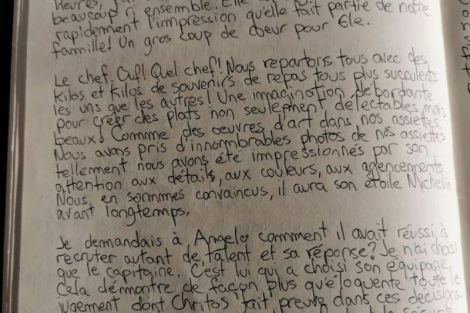 beaucoup ri ensemble. Elle
rapidement l'impression qu'elle fait partie de notre
famille! Un gros coup de coeur pour Ele.
Le chef. Ouf! Quel chef! Nous repartons tous avec des
kilos et kilos de souvenirs de repas tous plus succulents
les uns que les autres! Une imagination débordante
pour créer des plats non seulement délectables, mais
beaux! Comme des oeuvres d'art dans nos assiettes.
Nous avons pris d'innombrables photos de nos assiettes
tellement nous avons été impressionnés par son
attention aux détails, aux couleurs, aux agencements.
Nous, en sommes convaincus, il aura son étoile Michelin
avant longtemps.
Je demandais à Angelo comment il avait réussi à
recruter autant de talent et sa réponse? Je n'ai choisi
que le capitaine. C'est lui qui a choisi son équipage.
Cela démontre de façon plus qu'éloquente toute le
jugement dont Chritos fait preuve dans ces décisions.